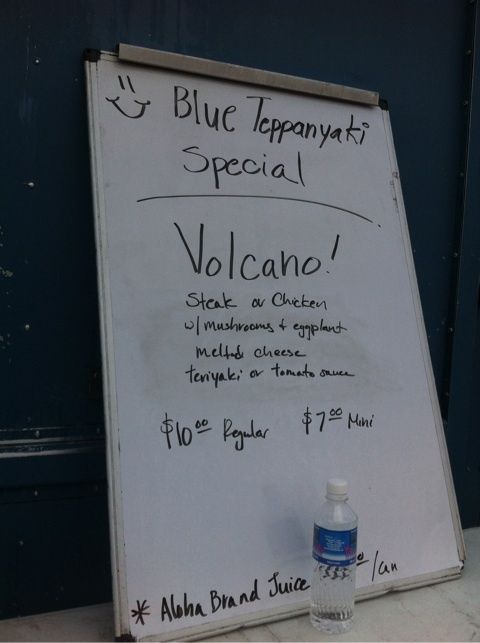 Blue Teppanyaki
Special
Volcano!
Steak or Chicken
w/ Mushrooms + eggplant
melted cheese
teriyaki or tomato sauce
$10.00 Regular $7.00 Mini
* Aloha Brand Juice /can